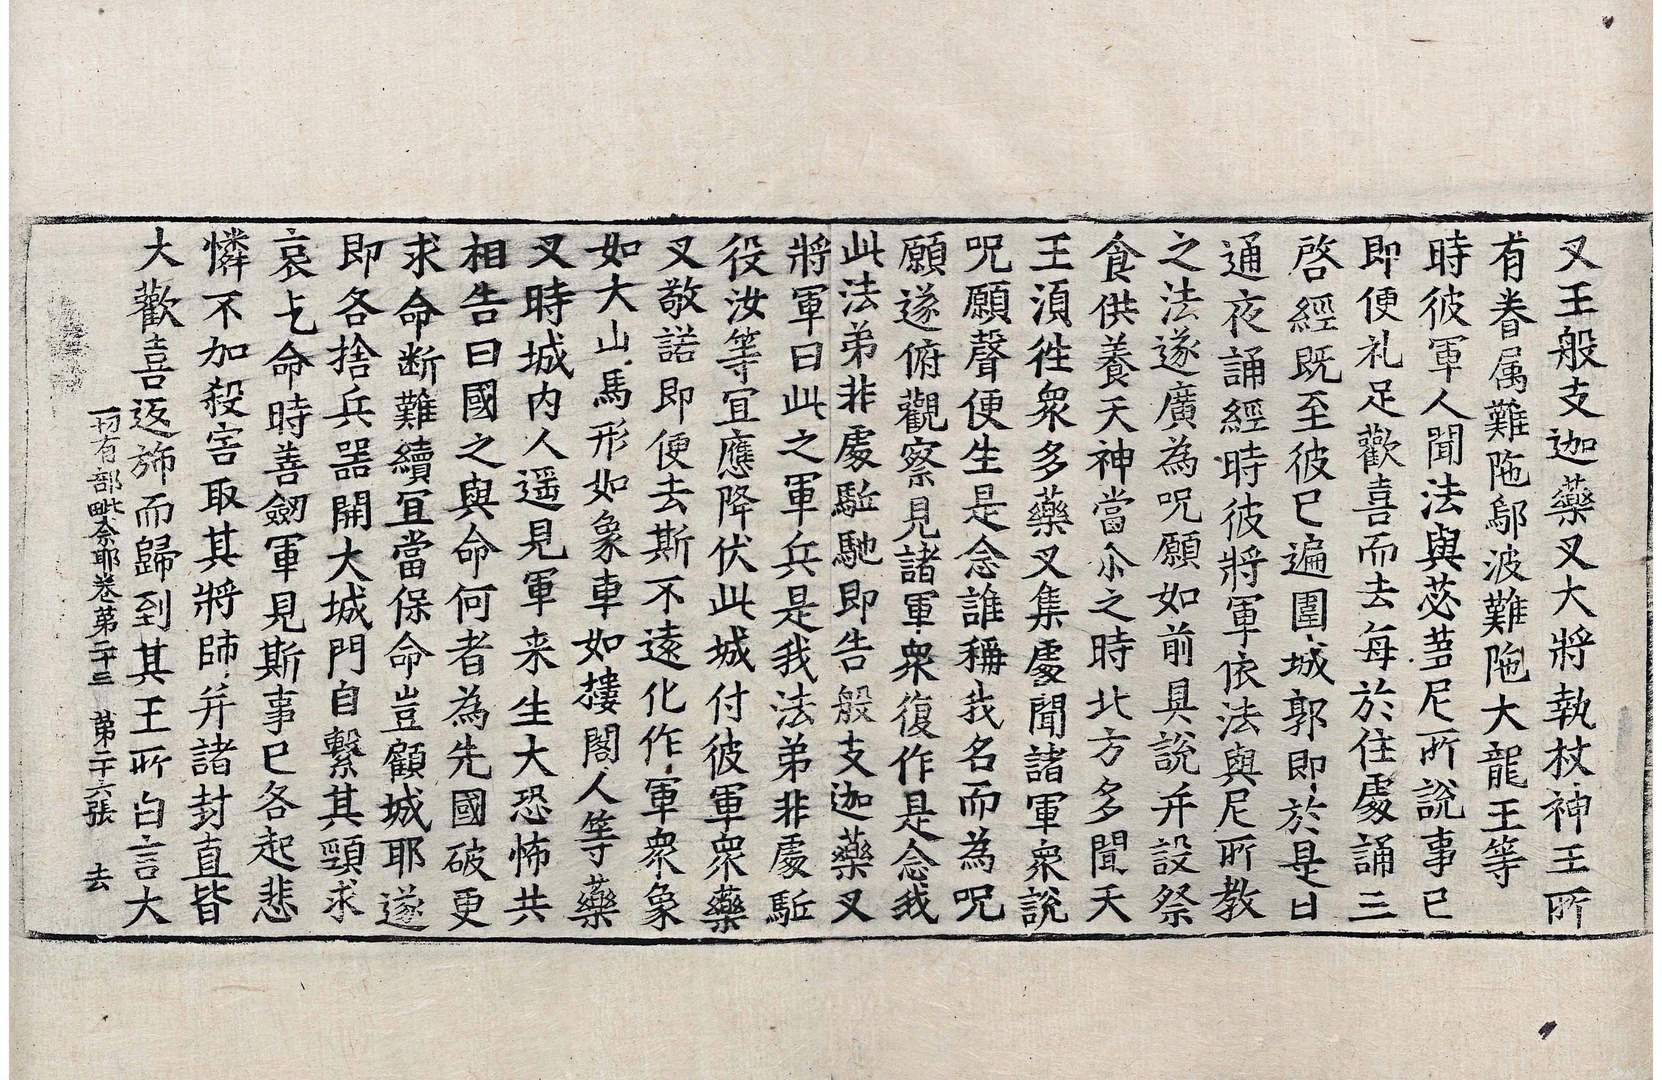 叉王般支迦藥叉大將執杖神王所
有眷属難陁鄔波難陁大龍王等
時彼軍人聞法與苾蒭尼所說事已
即便礼足歡喜而去每於住處誦三
啓經既至彼已遍圍城郭即於是日
通夜誦經時彼將軍依法與尼所教
之法遂廣為呪願如前具說并設祭
食供養天神當尒之時北方多聞天
王湏徃衆多藥叉集處聞諸軍衆說
呪願聲便生是念誰稱我名而為呪
願遂俯觀察見諸軍衆復作是念我
此法弟非處駈馳即告般支迦藥叉
將軍曰此之軍兵是我法弟非處駈
役汝等宜應降伏此城付彼軍衆藥
叉敬諾即便去斯不遠化作軍衆象
如大山馬形如象車如樓閣人等藥
叉時城内人遥見軍来生大恐怖共
相告曰國之與命何者為先國破更
求命断難續宜當保命豈顧城耶遂
即各捨兵器開大城門自繫其頸求
哀乞命時善劒軍見斯事已各起悲
憐不加殺害取其將師并諸封直皆
大歡喜返斾而歸到其王所白言大
一切有部毗奈耶卷第二十三 第二十六張 去